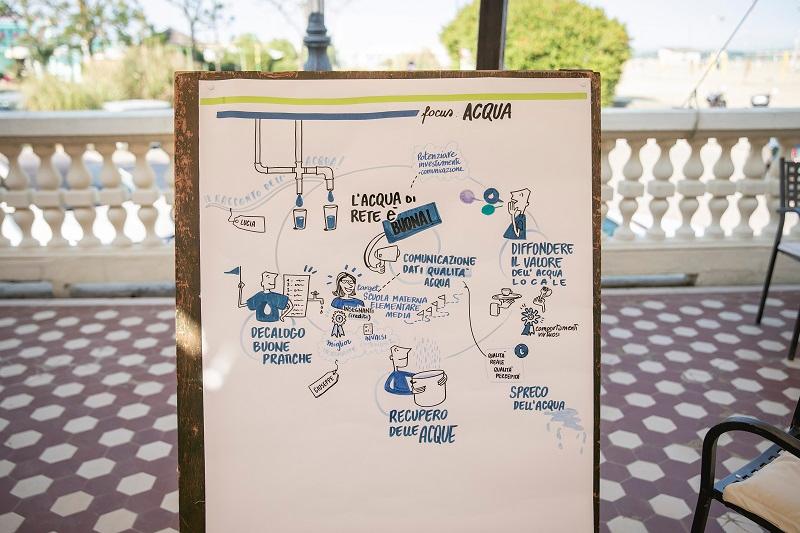 focus: ACQUA
IL RACCONTO DELL'
ACQUA!
LUCIA
Potenziare
investimenti
comunicazione
L'ACQUA DI
RETE è
BUONA!
COMUNICAZIONE
DATI QUALITA'
ACQUA
DIFFONDERE
IL VALORE
DELL'ACQUA
LOCALE
target
SCUOLA MATERNA
ELEMENTARE
MEDIA
INSEGNANTI
(crediti)
miglior
INVALSI
DECALOGO
BUONE
PRATICHE
GIUSEPPE
comportamenti
virtuosi
QUALITÀ
REALE
QUALITA'
PERCEPITA
RECUPERO
DELLE ACQUE
SPRECO
DELL'ACQUA